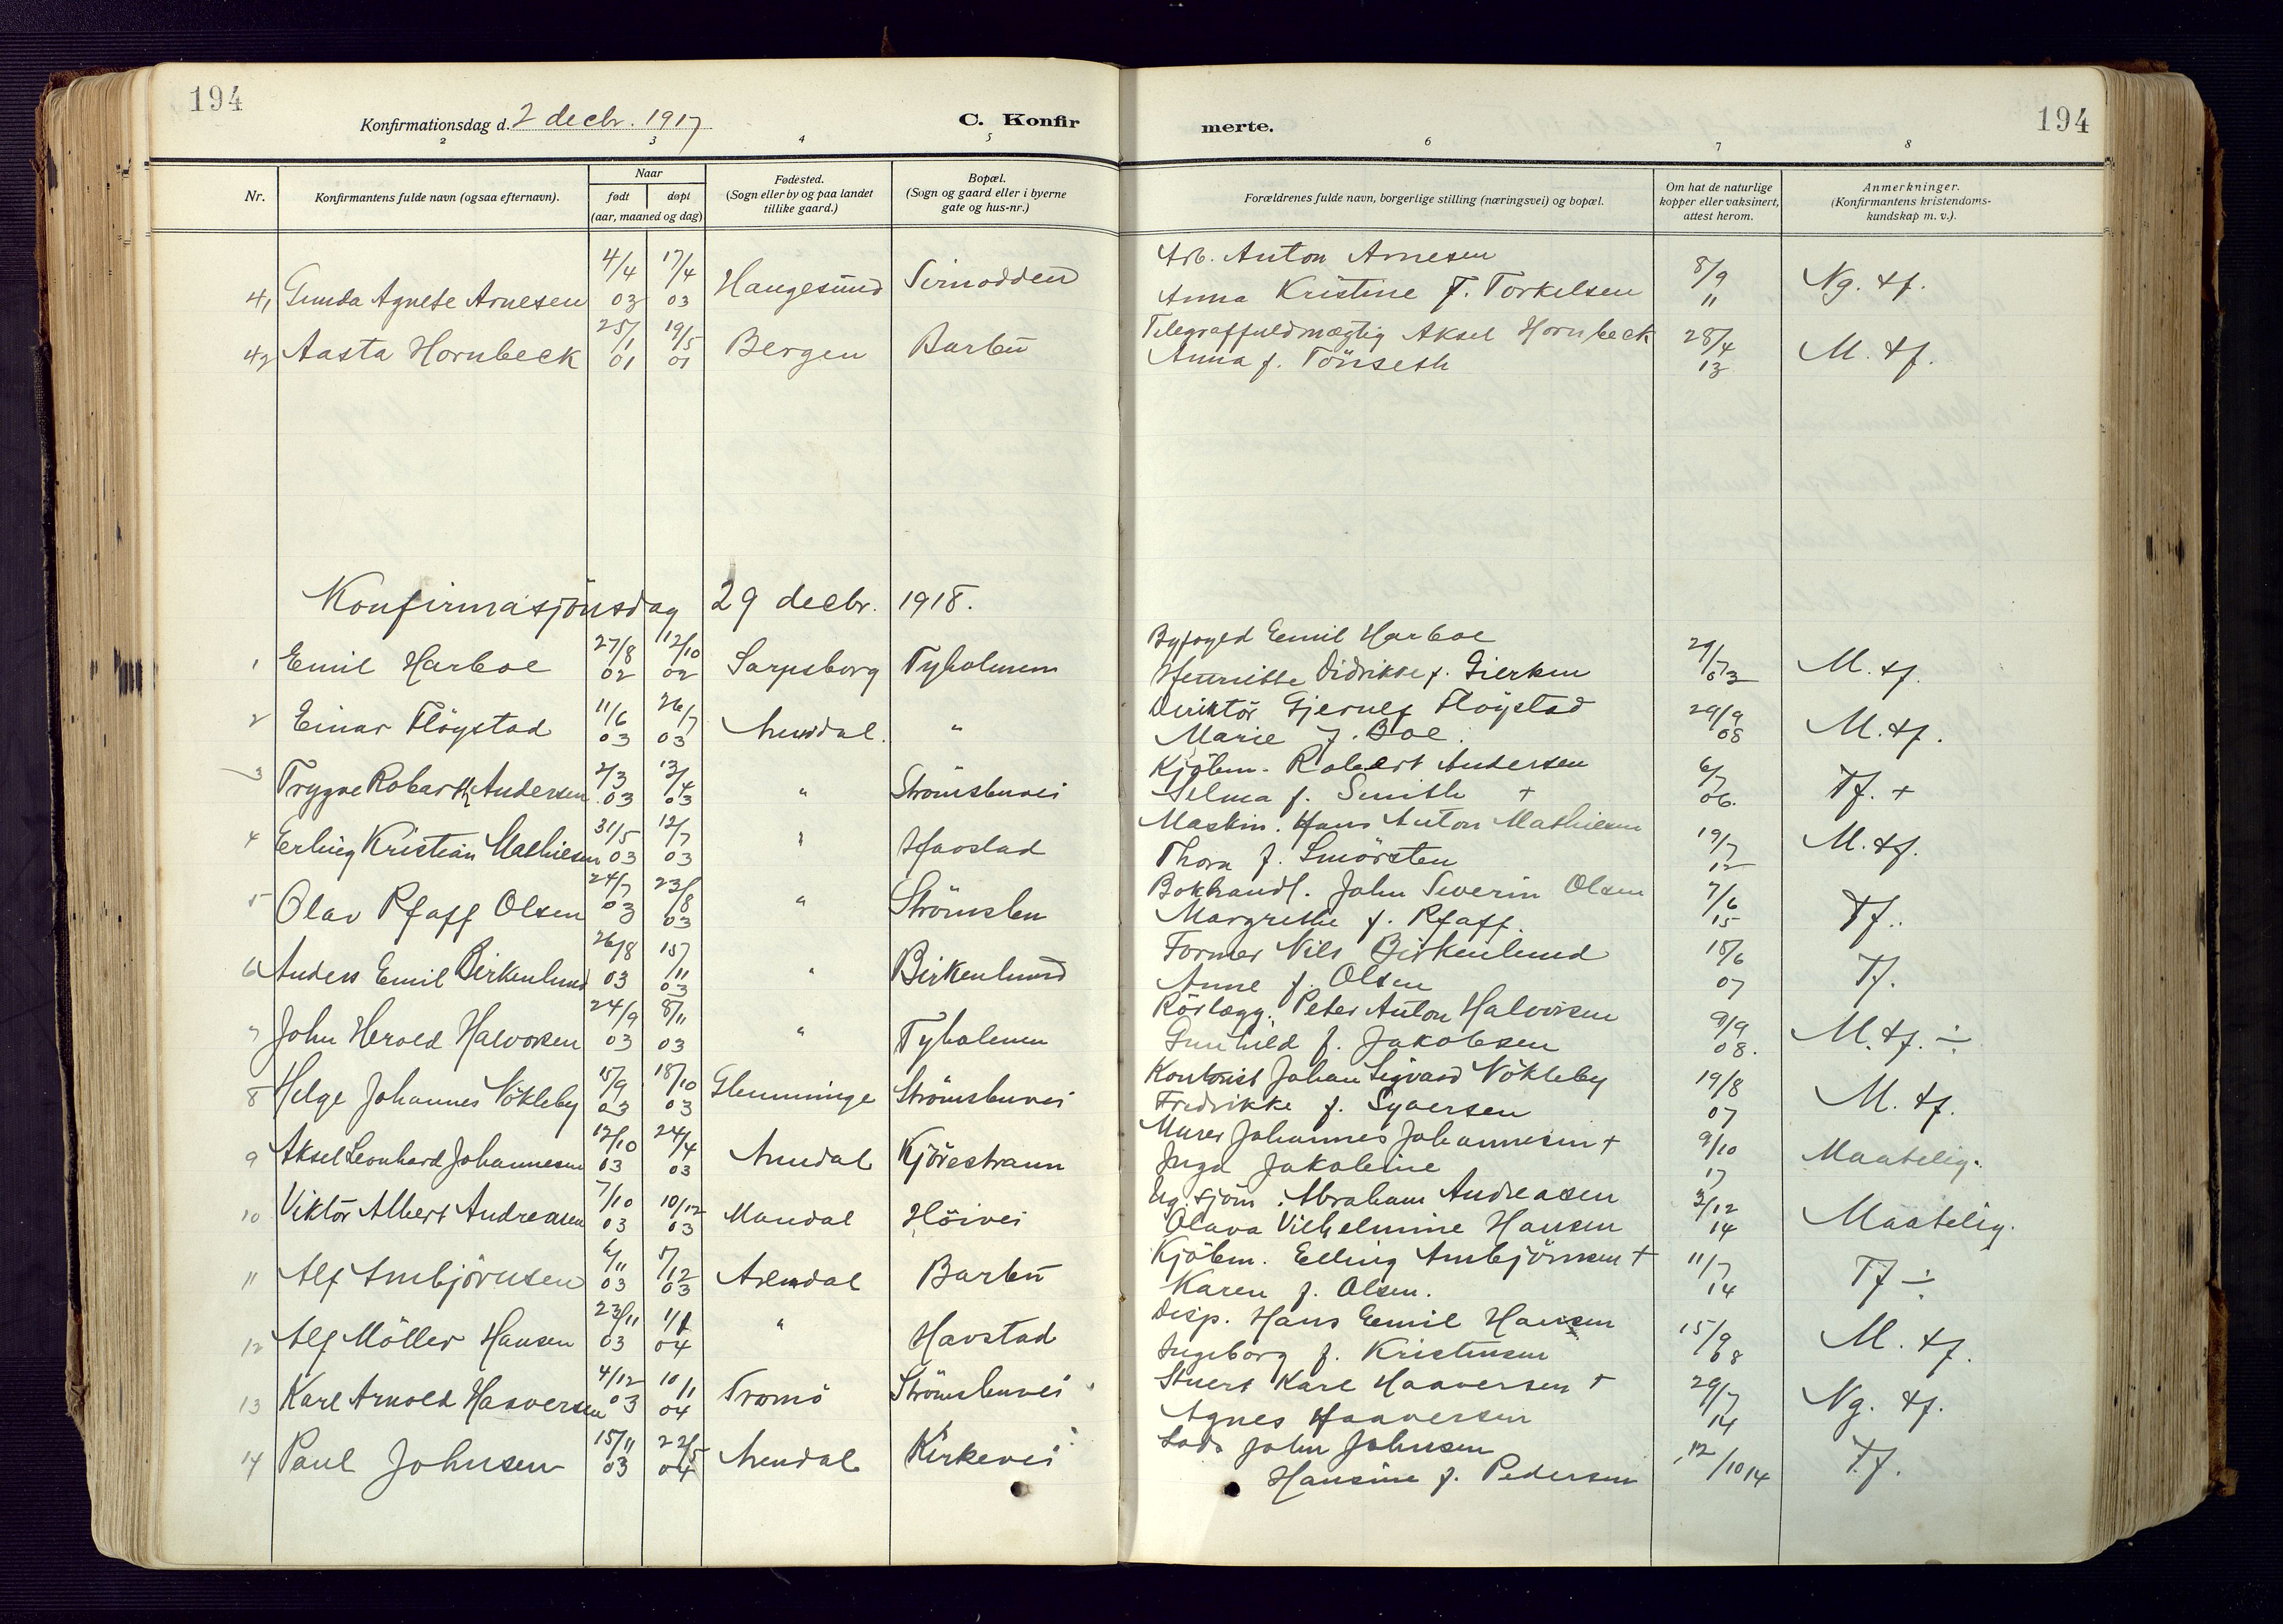 194
Konfirmationsdag d. 2 decbr. 1917
C. Konfir
merte.
194
2 3 4 5 6 7 8
Nr.
Konfirmantens fulde navn (ogsaa efternavn).
Naar
født
døpt
(aar, maaned og dag)
Fødested.
(Sogn eller by og paa landet
tillike gaard.)
Bopæl.
(Sogn og gaard eller i byerne
gate og hus-nr.)
Forældrenes fulde navn, borgerlige stilling (næringsvei) og bopæl.
Om hat de naturlige
kopper eller vaksinert,
attest herom.
Anmerkninger.
(Konfirmantens kristendoms-
kundskap m. v.).
41 Gunda Agnete Arnesen 4/4 03 17/4 03 Haugesund Sirnodden Arb. Anton Arnesen
Anna Kristine f. Torkelsen 8/9 11 Ng. tf.
42 Aasta Hornbeck 25/1 01 19/5 01 Bergen Barbu Telegraffuldmægtig Aksel Hornbeck
Anna f. Tönseth 28/4 13 M. tf.
Konfirmasjönsdag 29 decbr. 1918.
1 Emil Harboe 27/8 02 12/10 02 Sarpsborg Tyholmen Byfoged Emil Harboe
Henriette Didrikke f. Gierken 29/7 03 M. tf.
2 Einar Flöystad 11/6 03 26/7 03 Arendal. " Direktör Gjerulf Flöystad
Marie f. Boe. 29/9 08 M. tf.
3 Trygve Robarth Andersen 2/3 03 13/4 03 " Strömsbuvei Kjöbm. Robert Andersen
Selma f. Smith + 6/7 06. Tf. +
4 Erling Kristian Mathiesen 31/5 03 12/7 03 " Havstad Maskin. Hans Anton Mathiesen
Thora f. Smörsten 19/7 12 M. tf.
5 Olav Pfaff Olsen 24/7 03 23/8 03 " Strömsbu Bokhandl. John Severin Olsen
Margrethe f. Pfaff. 7/6 15 Tf.
6 Anders Emil Birkenlund 26/8 03 15/11 03 " Birkenlund Former Nils Birkenlund
Anne f. Olsen 18/6 07 Tf.
7 John Herold Halvorsen 24/9 03 8/11 03 " Tyholmen Rörlægg. Peter Anton Halvorsen
Gunhild f. Jakobsen 9/9 08. M. tf. ÷
8 Helge Johannes Nökleby 15/9 03 18/10 03 Glemminge Strömsbuvei Kontorist Johan Sigvard Nökleby
Fredrikke f. Syversen 19/8 07 M. tf.
9 Aksel Leonhard Johannesen 12/10 03 24/4 03 Arendal Kjörestrann Murer Johannes Johannesen +
Inga Jakobine 9/10 17 Maatelig.
10 Viktor Albert Andreasen 7/10 03 10/12 03 Mandal Höivei Ug. sjöm. Abraham Andreasen
Olava Vilhelmine Hansen 3/12 14 Maatelig.
11 Alf Arnbjörnsen 6/11 03 5/12 03 Arendal Barbu Kjöbm. Elling Arnbjörnsen +
Karen f. Olsen. 11/7 14 Tf ÷
12 Alf Möller Hansen 23/11 03 1/1 04 " Havstad Disp. Hans Emil Hansen
Ingeborg f. Kristensen 15/9 08 M. tf.
13 Karl Arnold Haaversen 4/12 03 10/1 04 Tromö Strömsbuvei Stuert Karl Haaversen +
Agnes Haaversen 29/7 14 Ng. tf.
14 Paul Johnsen 15/11 03 22/5 04 Arendal Kirkevei Lods John Johnsen
Hansine f. Pedersen 12/10 14 T.f.